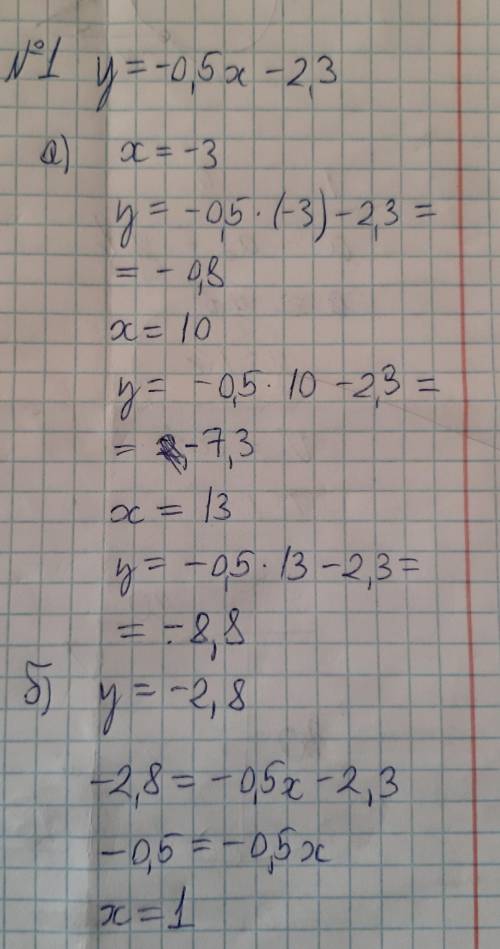 №1 y = -0,5x - 2,3
а) x = -3
y = -0,5 · (-3) - 2,3 =
= - 0,8
x = 10
y = -0,5 · 10 - 2,3 =
= -7,3
x = 13
y = -0,5 · 13 - 2,3 =
= -8,8
б) y = -2,8
-2,8 = -0,5x - 2,3
-0,5 = -0,5x
x = 1